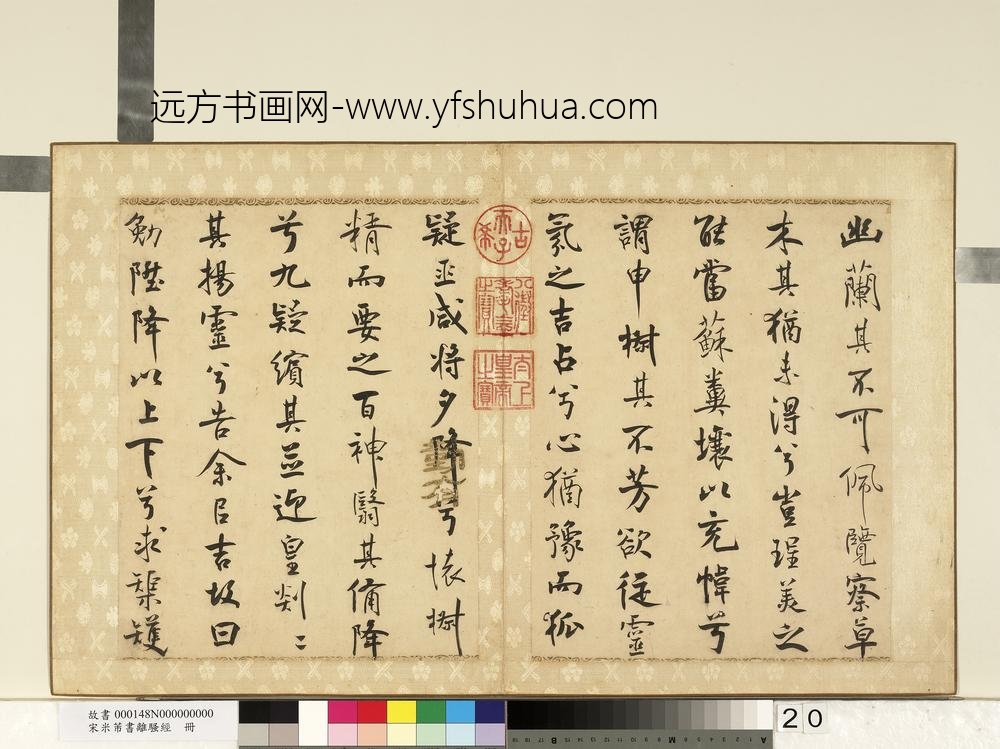 远方书画网-www.yfshuhua.com
幽蘭其不可佩覽察草
木其猶未得兮豈珵美之
能當蘇糞壤以充幃兮
謂申椒其不芳欲從靈
氛之吉占兮心猶豫而狐
疑巫咸將夕降兮懷椒
精而要之百神翳其備降
兮九疑繽其並迎皇剡〻
其揚靈兮告余以吉故曰
勉陞降以上下兮求榘矱
古稀天子
八徵耄念之寶
太上皇帝之寶
故書 000148N000000000
宋米芾書離騷經 冊
20